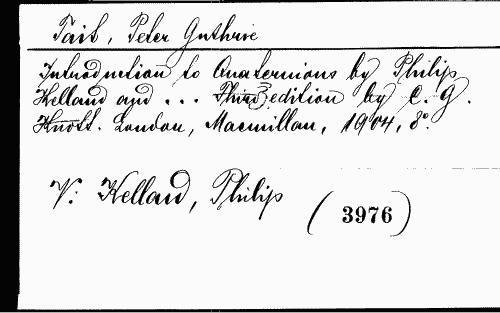 Tait, Peter Guthrie
Introduction to Quaternions by Philip
Kelland and ... Third 3 edition by C. G.
Knott. London, Macmillan, 1904, 8º.
V: Kelland, Philip
(3976)